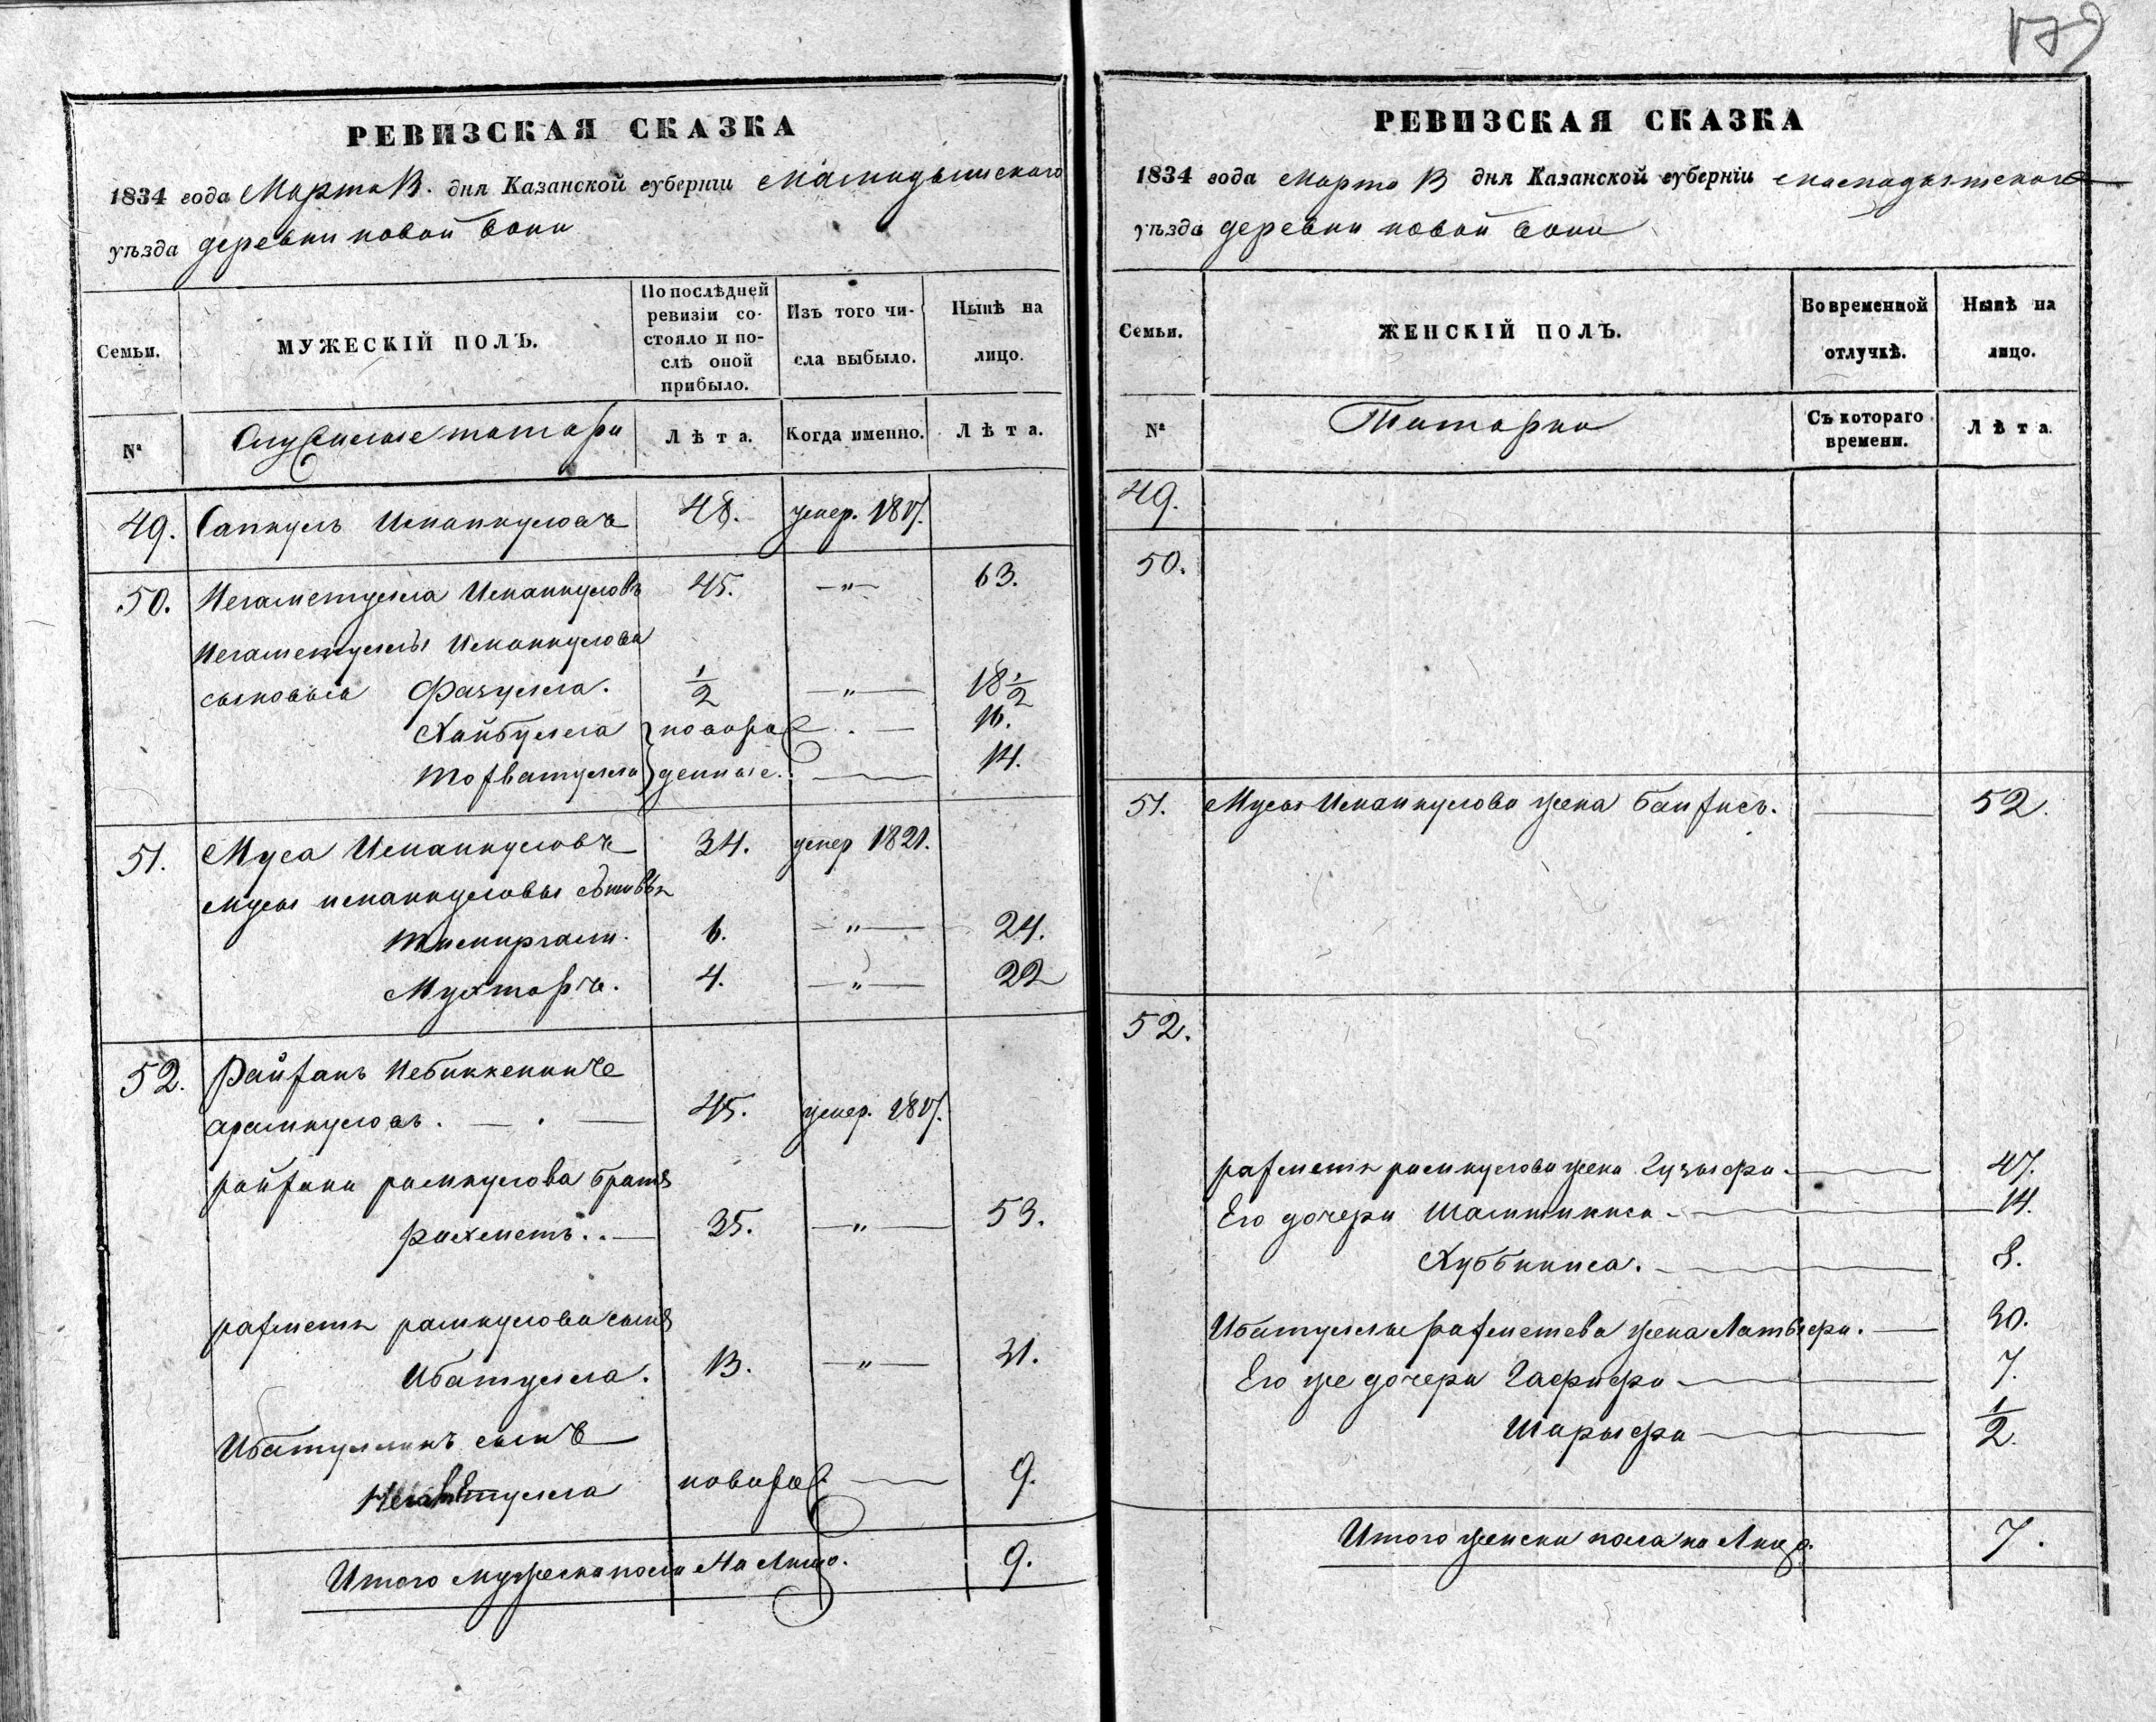 179
РЕВИЗСКАЯ СКАЗКА
1834 года Марта 13. дня Казанской губерніи Мамадышскаго
уѣзда деревни новой
Семьи.
МУЖЕСКІЙ ПОЛЪ.
По послѣдней ревизіи состояло и послѣ оной прибыло.
Изъ того числа выбыло.
Нынѣ на лицо.
№
Служилые татары
Лѣта.
Когда именно.
Лѣта.
49. Сапкулъ Исманкуловъ 48. умер. 1817.
50. Негаметулла Исманкуловъ 45. —"— 63.
Негаметуллы Исманкулова
сыновья Фазулла. 1/2 —"— 18 1/2
Хайбулла } новорож 16.
Тохватулла } денные. — 14.
51. Муса Исманкуловъ 34. умер 1821.
Мусы исманкуловы
Тимиргали. 6. —"— 24.
Мухтаръ. 4. —"— 22
52. Райханъ
арамкуловъ. — . — 45. умер. 1817.
райхана рамкулова братъ
рахметъ. . — 35. —"— 53.
рахметя рамкулова сынъ
Ибатулла. 13. —"— 31.
Ибатуллинъ сынъ
новорож. — 9.
Итого мужеска пола На Лицо. 9.
РЕВИЗСКАЯ СКАЗКА
1834 года Марта 13 дня Казанской губерніи Мамадышскаго
уѣзда деревни новой
Семьи.
ЖЕНСКІЙ ПОЛЪ.
Во временной отлучкѣ.
Нынѣ на лицо.
№
Татарки
Съ котораго времени.
Лѣта.
49.
50.
51. Мусы Исманкулова жена — 52.
52.
рахметя рамкулова жена — 47.
Его дочери — 14.
Хуббиниса. — 8.
Ибатуллы рахметева жена Латыфа. — 30.
Его же дочери Гафифа — 7.
Шарыфа — 1/2.
Итого женска пола на Лицо. 7.